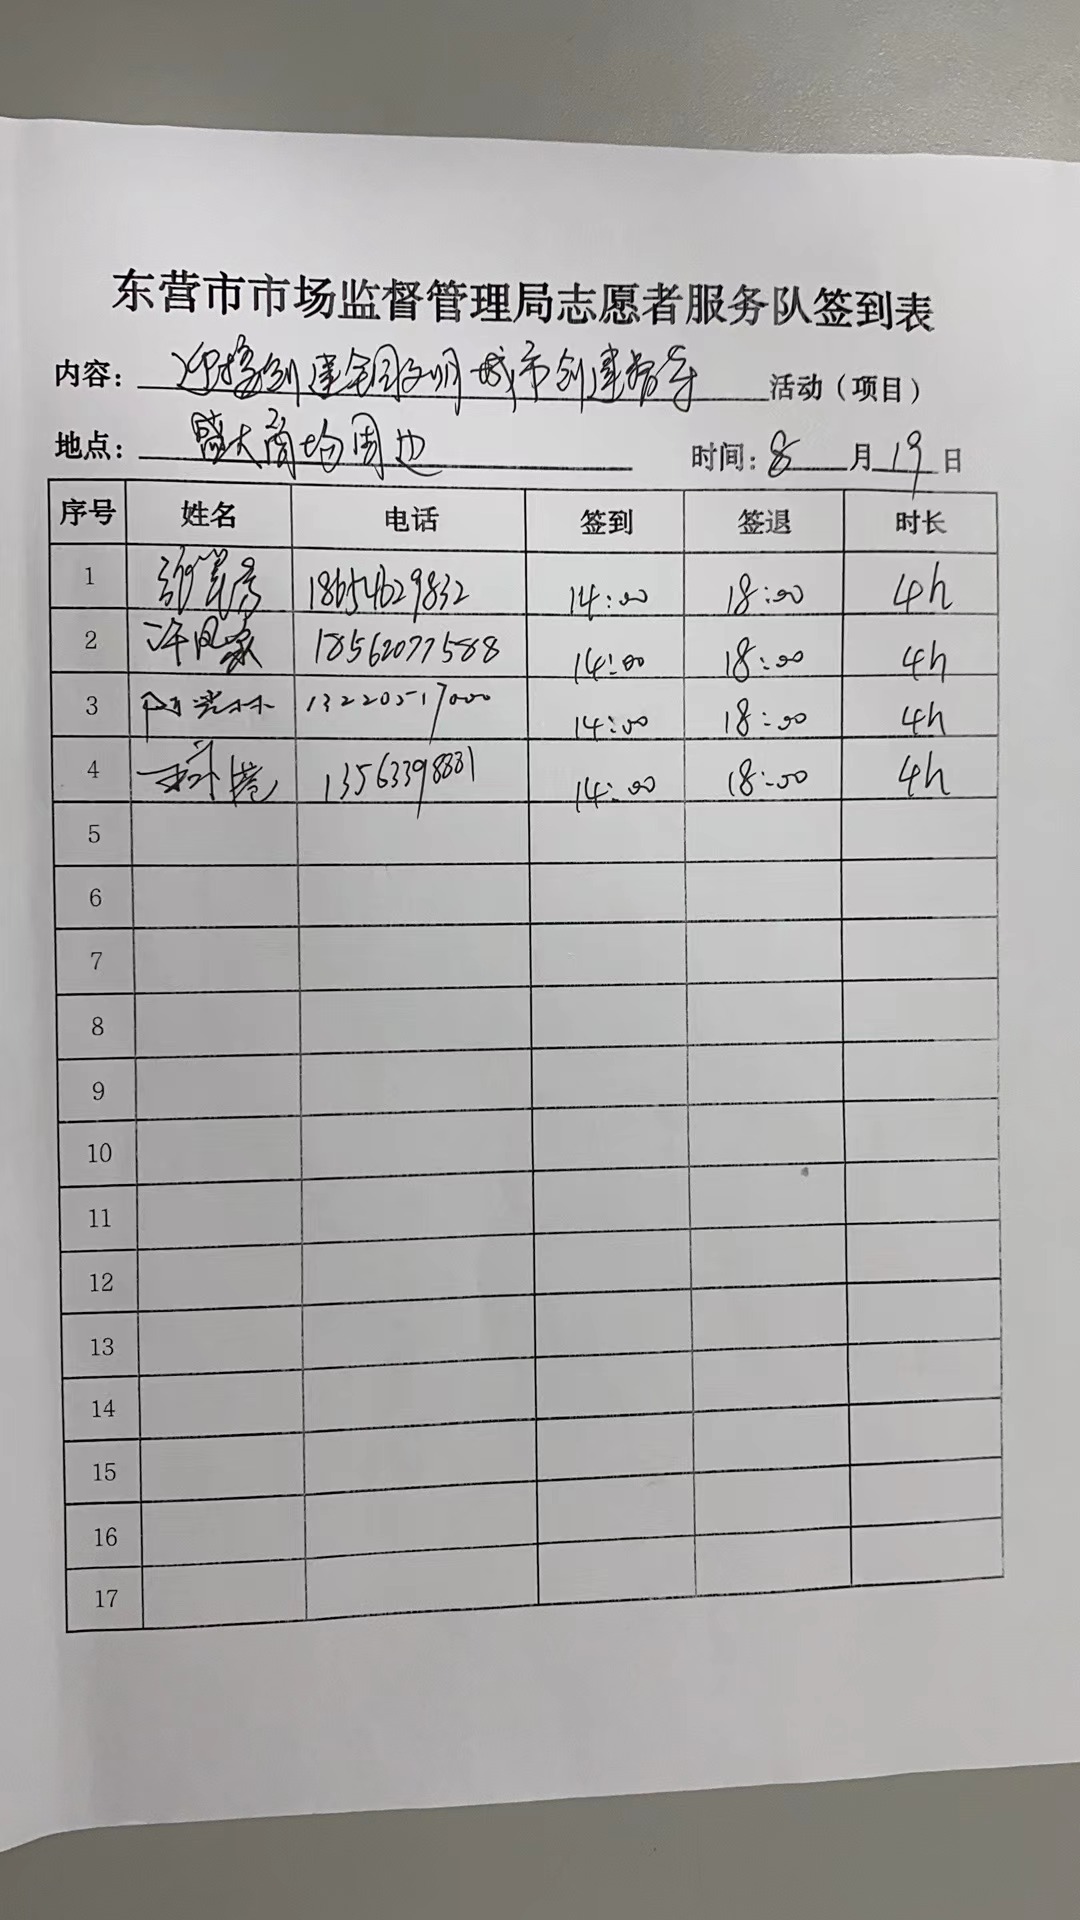 东营市市场监督管理局志愿者服务队签到表
内容：迎接创建全国文明城市创建指导活动（项目）
地点：盛大商场周边 时间：8月19日
序号 姓名 电话 签到 签退 时长
1 18654629832 14:00 18:00 4h
2 18562077588 14:00 18:00 4h
3 13220517000 14:00 18:00 4h
4 13563398881 14:00 18:00 4h
5
6
7
8
9
10
11
12
13
14
15
16
17